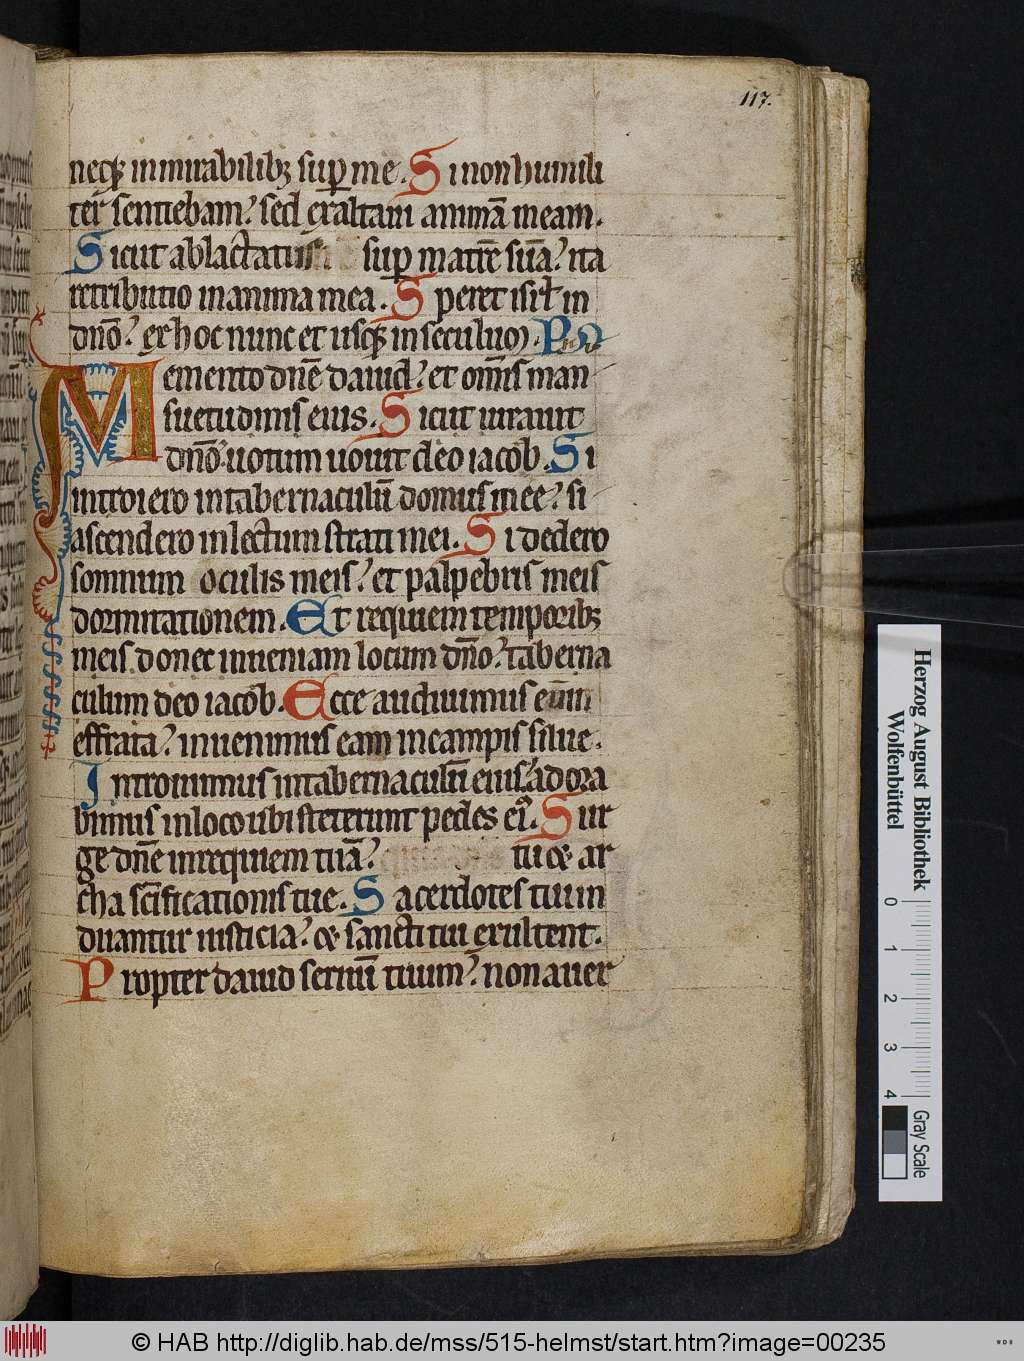 117.
neqꝫ in mirabilibꝫ suꝑ me. Si non humili
ter sentiebam? sed exaltaui animā meam.
Sicut ablactatus suꝑ matrē suā? ita
retributio in anima mea. Speret isrł in
dn̄o? ex hoc nunc et usqꝫ in seculum.
Memento dn̄e dauid? et om̄is man
suetudinis eius. Sicut iurauit
dn̄o? uotum uouit deo iacob. Si
introiero in tabernaculū domus mee? si
ascendero in lectum strati mei. Si dedero
somnum oculis meis? et palpebris meis
dormitationem. Et requiem temporibꝫ
meis. donec inueniam locum dn̄o? taberna
culum deo iacob. Ecce audiuimus eum
effrata? inuenimus eam in campis silue.
Introiuimus in tabernaculū eius? adora
bimus in loco ubi steterunt pedes eiꝰ. Sur
ge dn̄e in requiem tuā? tu et ar
cha sc̄ificationis tue. Sacerdotes tui in
duantur iusticia? et sancti tui exultent.
Propter dauid seruū tuum? non auer
Herzog August Bibliothek
Wolfenbüttel
0 1 2 3 4
Gray Scale
© HAB http://diglib.hab.de/mss/515-helmst/start.htm?image=00235